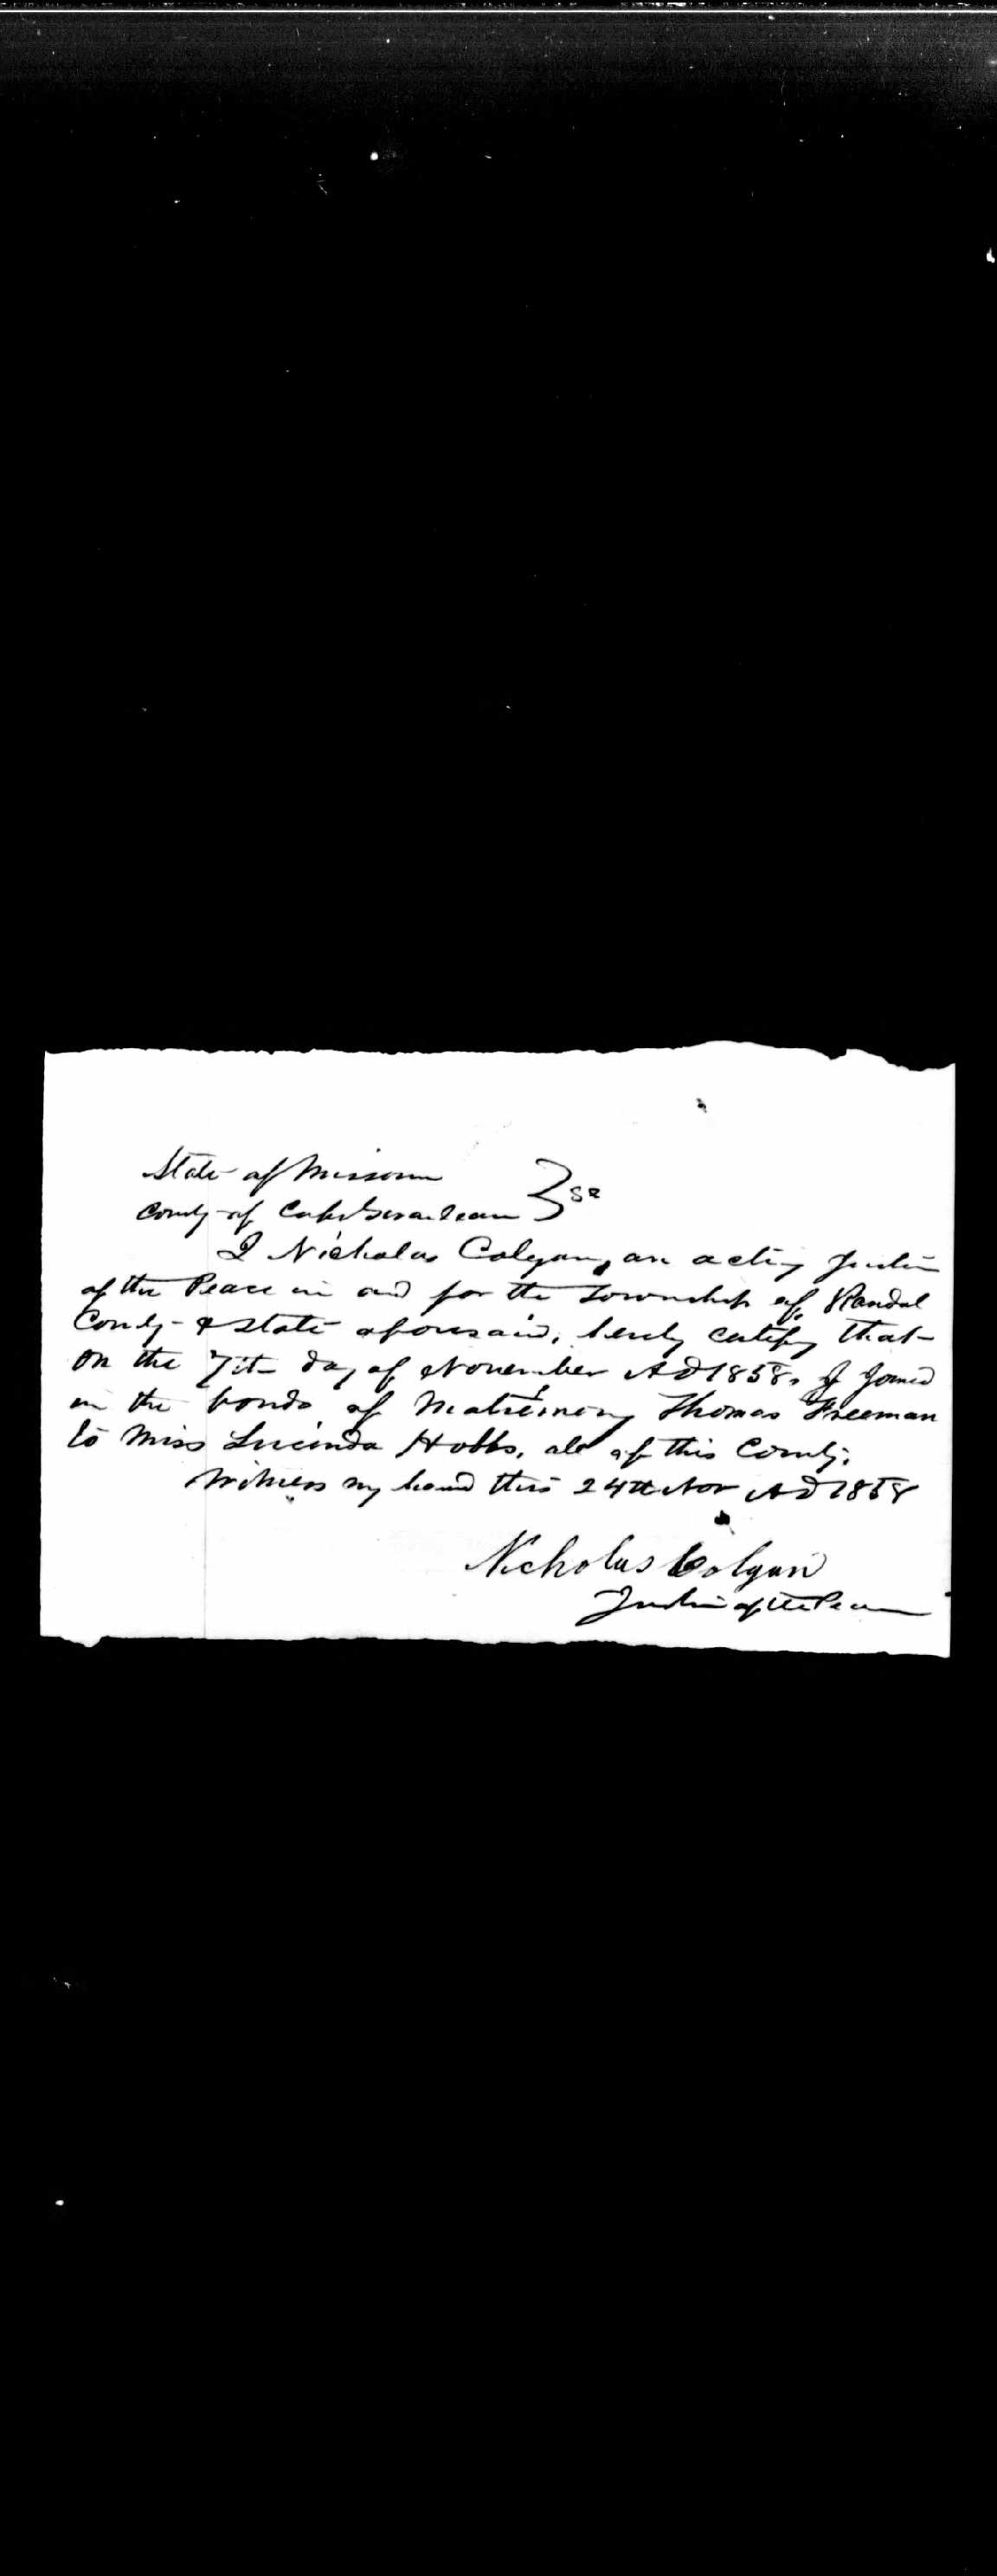 State of Missouri
County of Cape Girardeau } ss
I Nicholas Colgan, an acting Justice
of the Peace in and for the Township of Randol
County & State aforesaid, hereby certify that
on the 7th day of November AD 1858, I joined
in the bonds of Matrimony Thomas Freeman
to Miss Lucinda Hobbs, all of this County.
Witness my hand this 24th Nov AD 1858
Nicholas Colgan
Justice of the Peace